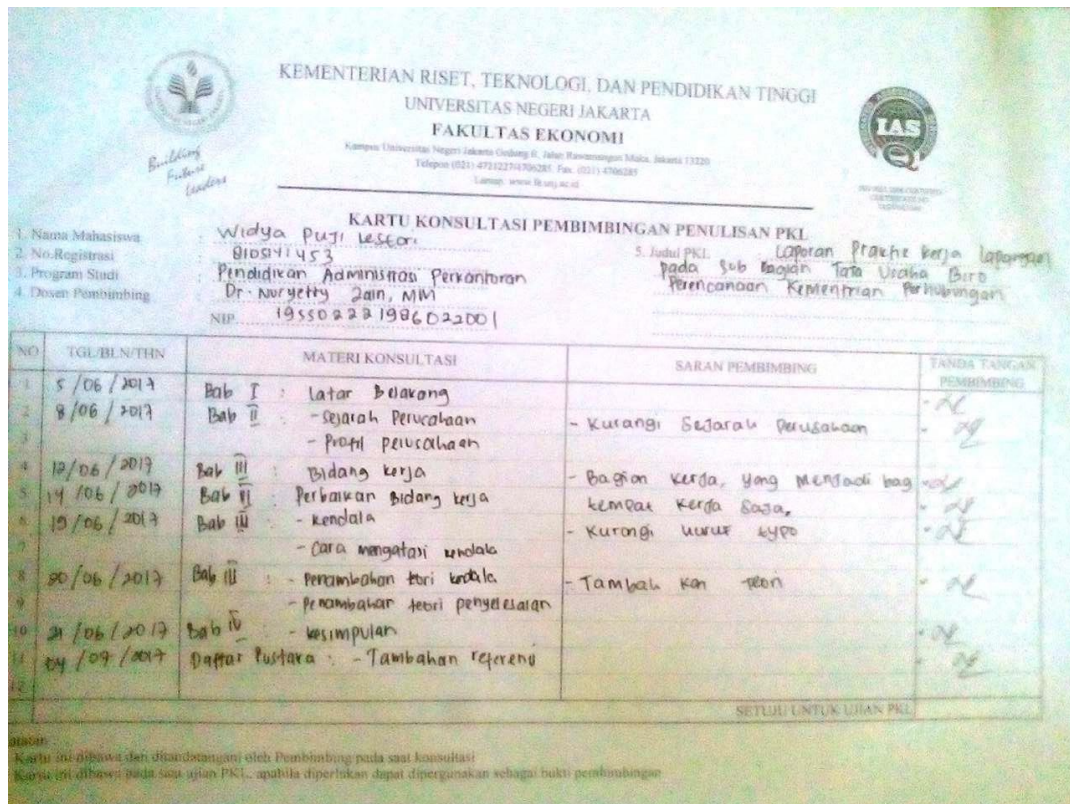 KEMENTERIAN RISET, TEKNOLOGI, DAN PENDIDIKAN TINGGI
UNIVERSITAS NEGERI JAKARTA
FAKULTAS EKONOMI
Kampus Universitas Negeri Jakarta Gedung R, Jalan Rawamangun Muka, Jakarta 13220
Telepon (021) 4721227/4706285, Fax. (021) 4706285
Laman: www.fe.unj.ac.id
Building
Future
Leaders
IAS
KARTU KONSULTASI PEMBIMBINGAN PENULISAN PKL
1. Nama Mahasiswa : Widya Puji Lestari
2. No.Registrasi : 8105141453
3. Program Studi : Pendidikan Administrasi Perkantoran
4. Dosen Pembimbing : Dr. Nuryetty Zain, MM
NIP. 195502221986022001
5. Judul PKL : Laporan Praktik Kerja Lapangan
pada Sub Bagian Tata Usaha Biro
Perencanaan Kementrian Perhubungan
NO TGL/BLN/THN MATERI KONSULTASI SARAN PEMBIMBING TANDA TANGAN PEMBIMBING
1 5/06/2017 Bab I : Latar Belakang
2 8/06/2017 Bab II : - Sejarah Perusahaan - Kurangi Sejarah perusahaan
3 - Profil perusahaan
4 12/06/2017 Bab III : Bidang kerja - Bagian kerja, yang menjadi bag
5 14/06/2017 Bab III : Perbaikan Bidang kerja tempat kerja saja,
6 19/06/2017 Bab III - kendala - Kurangi huruf typo
7 - Cara mengatasi kendala
8 20/06/2017 Bab III : - Penambahan teori kendala - Tambah kan teori
9 - Penambahan teori penyelesaian
10 21/06/2017 Bab IV - kesimpulan
11 04/07/2017 Daftar Pustaka : - Tambahan referensi
12
SETUJU UNTUK UJIAN PKL
Kartu ini dibawa dan ditandatangani oleh Pembimbing pada saat konsultasi
Kartu ini dibawa pada saat ujian PKL, apabila diperlukan dapat dipergunakan sebagai bukti pembimbingan